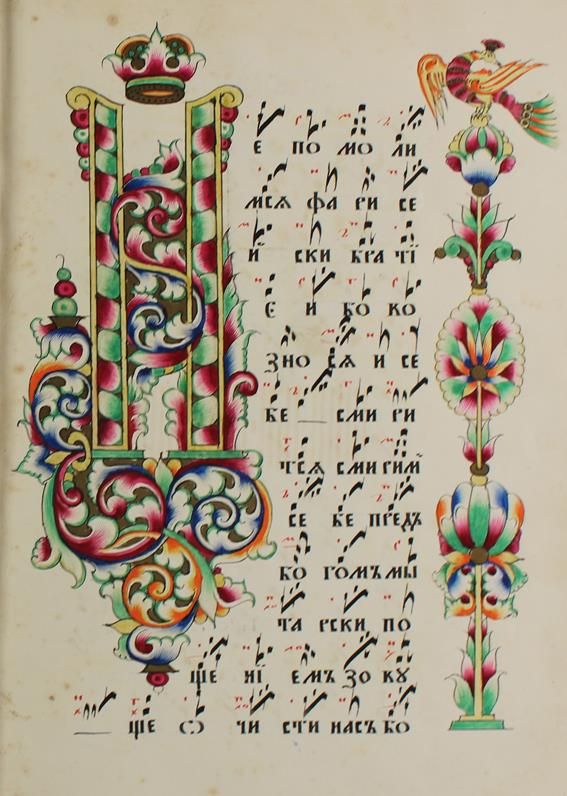 Н
Е ПО МО ЛИ
МСѦ ФА РИ СЕ
Й СКИ БРА ТЇ
Е И БО КО
ЗНО СѦ И СЕ
БЕ __ СМИ РИ
ТСѦ СМИ РИМЪ
СЕ БЕ ПРЕДЪ
БО ГОМЪ МЫ
ТА РСКИ ПО
ЩЕ НЇ ЕМЪ ЗО ВꙊ
__ ЩЕ Ѡ ЧИ СТИ НАСЪ БО